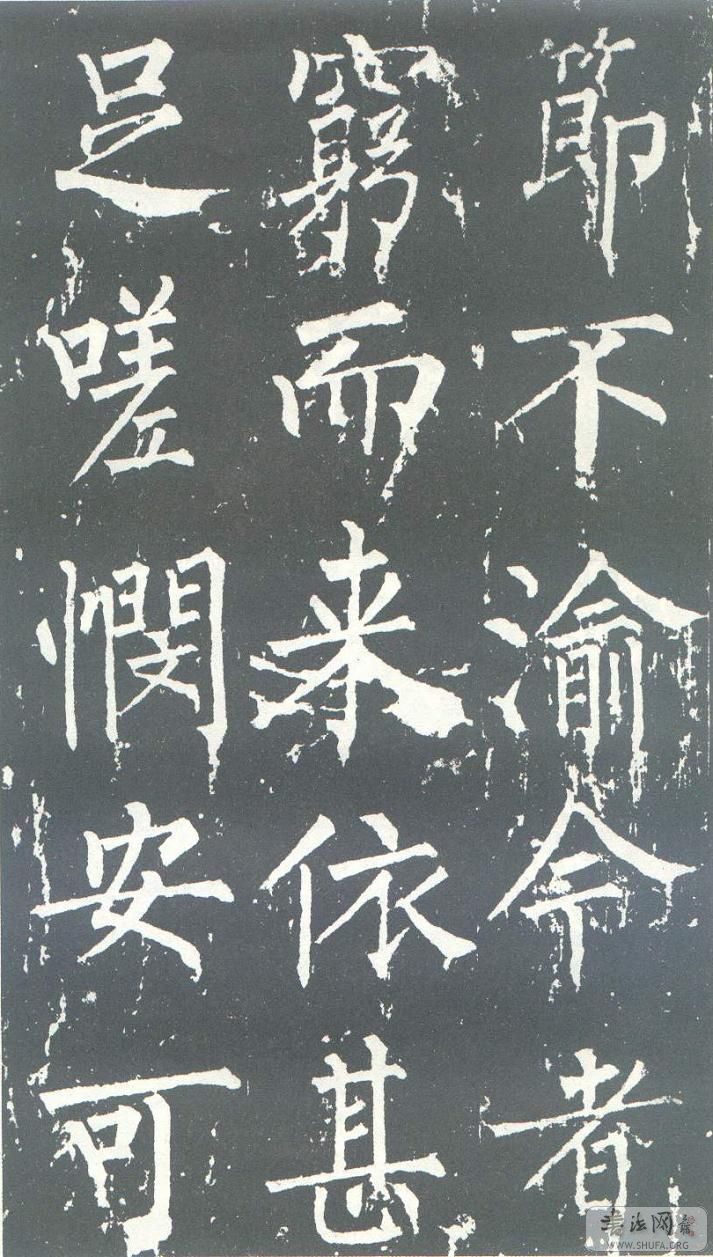 節不渝今者
窮而来依甚
足嗟憫安可
书法网
WWW.SHUFA.ORG